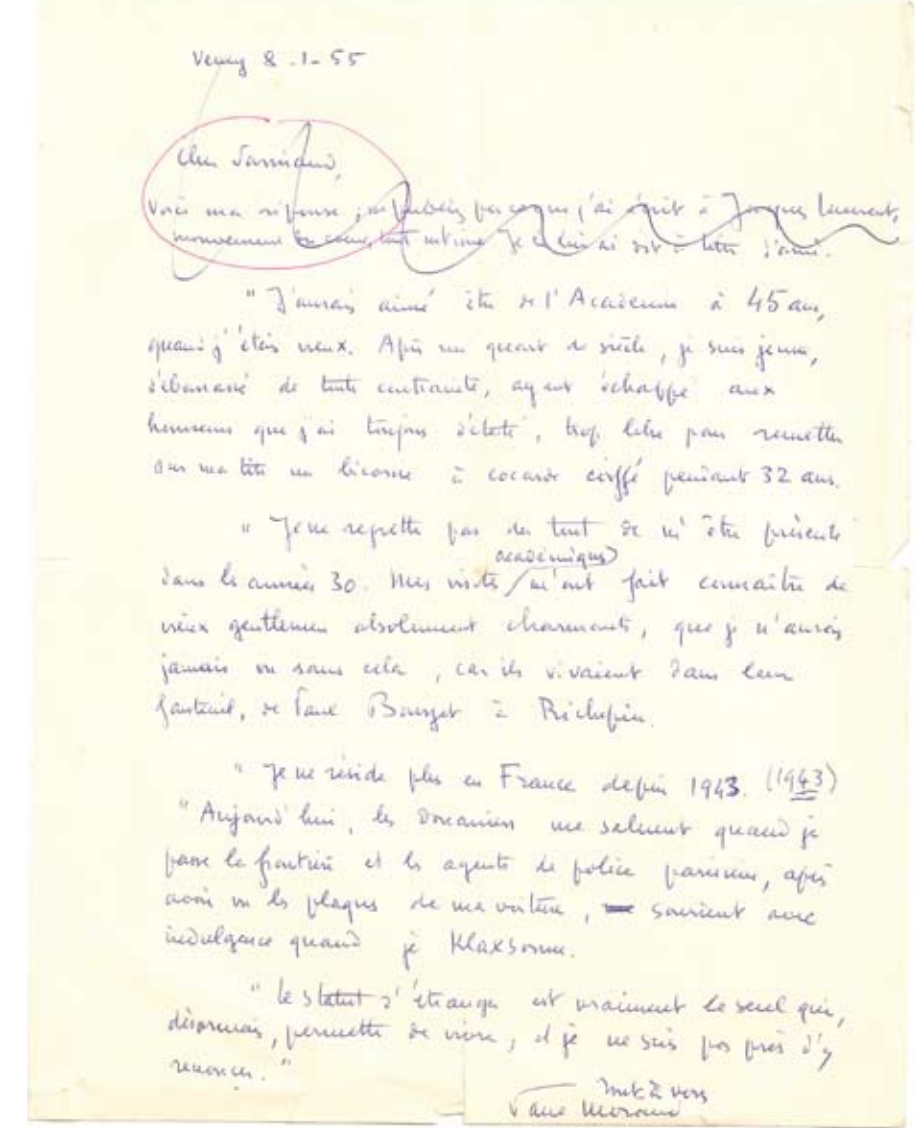 Vevey 8-1-55
Cher Parinaud,
Voici ma réponse ; ne publiez pas ce que j'ai écrit à Jacques Laurent,
mouvement du cœur, tout intime. Je le lui ai dit à titre d'ami.
" J'aurais aimé être de l'Académie à 45 ans,
quand j'étais vieux. Après un quart de siècle, je suis jeune,
débarrassé de toute contrainte, ayant échappé aux
honneurs que j'ai toujours détesté, trop libre pour remettre
sur ma tête un bicorne à cocarde coiffé pendant 32 ans.
" Je ne regrette pas du tout de m'être présenté
académiques
dans les années 30. Mes visites m'ont fait connaître de
vieux gentlemen absolument charmants, que je n'aurais
jamais vu sans cela, car ils vivaient dans leur
fauteuil, de Paul Bourget à Richepin.
" Je ne réside plus en France depuis 1943. (1943)
" Aujourd'hui, les douaniers me saluent quand je
passe la frontière et les agents de police parisiens, après
avoir vu les plaques de ma voiture, sourient avec
indulgence quand je Klaxonne.
" Le statut d'étranger est vraiment le seul qui,
désormais, permette de vivre, et je ne suis pas près d'y
renoncer. "
à vous
Paul Morand